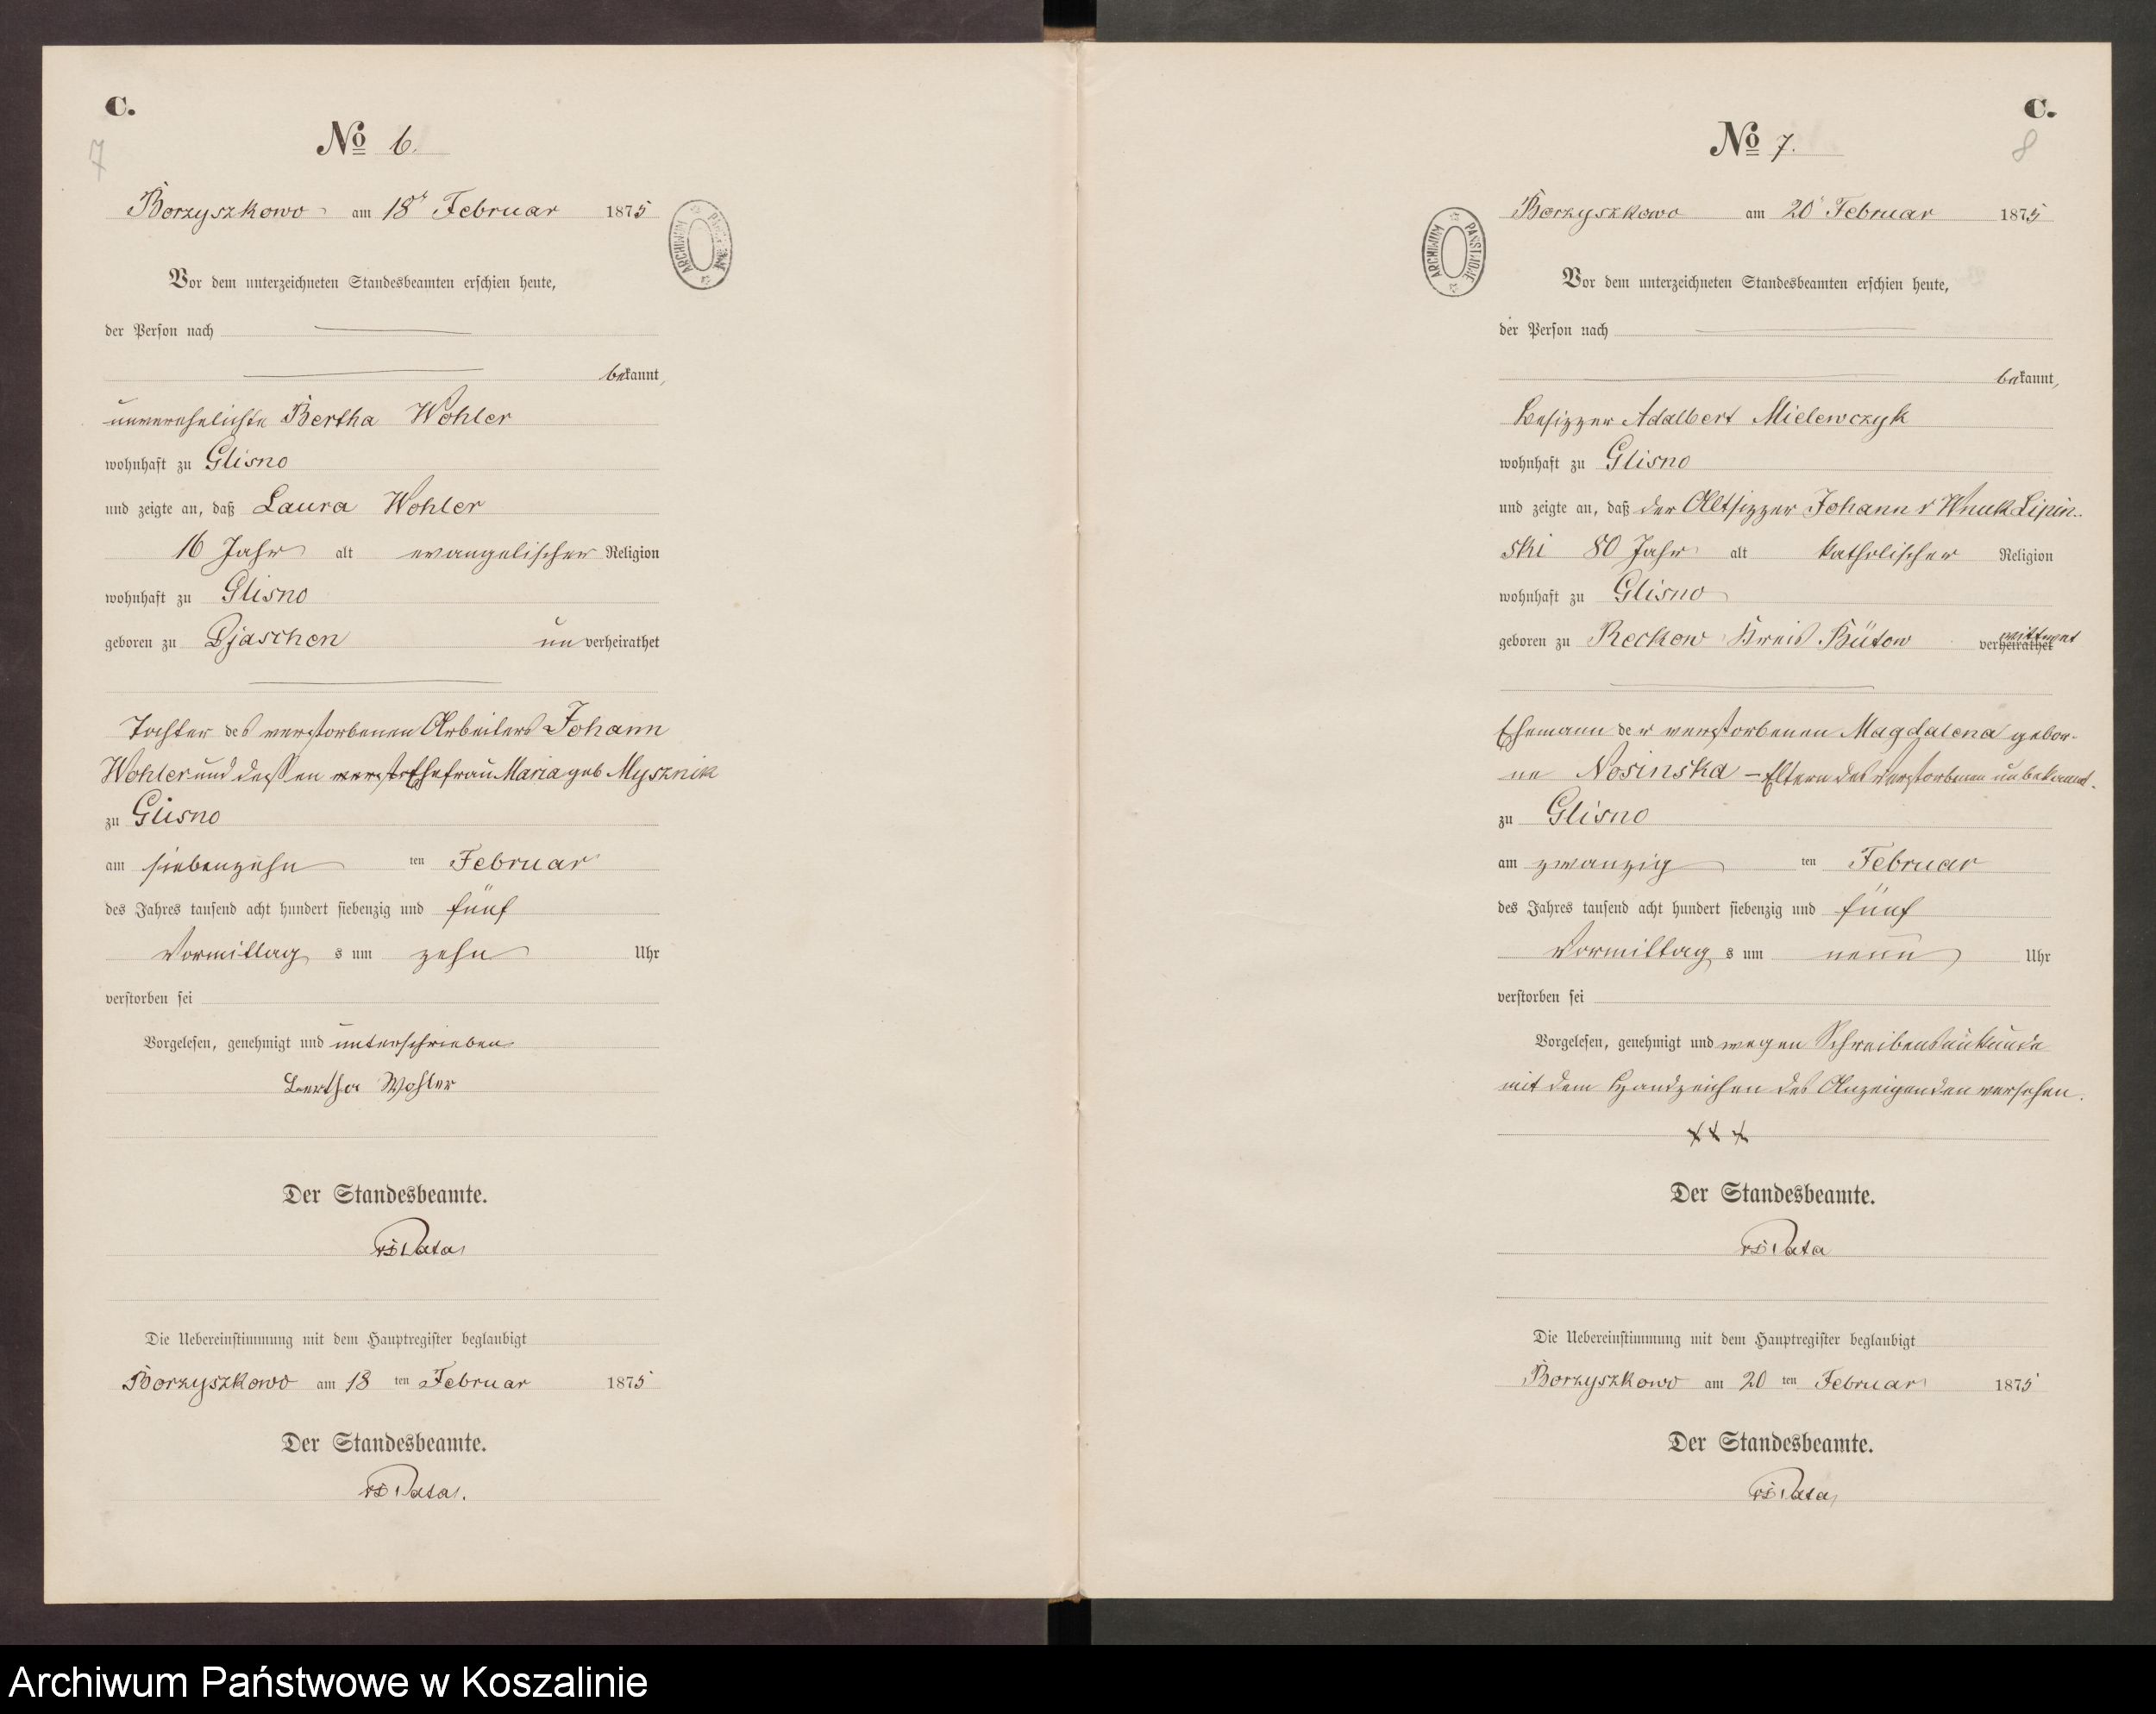 C.
7
No 6.
Borzyszkowo am 18t Februar 1875
ARCHIWUM PAŃSTWOWE
Vor dem unterzeichneten Standesbeamten erschien heute,
der Person nach
bekannt,
unverehelichte Bertha Wohler
wohnhaft zu Glisno
und zeigte an, daß Laura Wohler
16 Jahr alt evangelischer Religion
wohnhaft zu Glisno
geboren zu Djaschen unverheirathet
Tochter des verstorbenen Arbeiters Johann
Wohler und dessen verst Ehefrau Maria geb Mysznik
zu Glisno
am siebenzehn ten Februar
des Jahres tausend acht hundert siebenzig und fünf
Vormittag s um zehn Uhr
verstorben sei
Vorgelesen, genehmigt und unterschrieben
Bertha Wohler
Der Standesbeamte.
Pata
Die Uebereinstimmung mit dem Hauptregister beglaubigt
Borzyszkowo am 18 ten Februar 1875
Der Standesbeamte.
Pata.
C.
8
No 7.
Borzyszkowo am 20t Februar 1875
ARCHIWUM PAŃSTWOWE
Vor dem unterzeichneten Standesbeamten erschien heute,
der Person nach
bekannt,
Besizzer Adalbert Mielewczyk
wohnhaft zu Glisno
und zeigte an, daß der Altsizzer Johann v Wnuk Lipin-
ski 80 Jahr alt katholischer Religion
wohnhaft zu Glisno
geboren zu Reckow Kreis Bütow verheirathet wittwet
Ehemann der verstorbenen Magdalena gebor-
ne Nosinska – Eltern des Verstorbenen unbekannt.
zu Glisno
am zwanzig ten Februar
des Jahres tausend acht hundert siebenzig und fünf
Vormittag s um neun Uhr
verstorben sei
Vorgelesen, genehmigt und wegen Schreibensunkunde
mit dem Handzeichen des Anzeigenden versehen.
xxx
Der Standesbeamte.
Pata
Die Uebereinstimmung mit dem Hauptregister beglaubigt
Borzyszkowo am 20 ten Februar 1875
Der Standesbeamte.
Pata
Archiwum Państwowe w Koszalinie